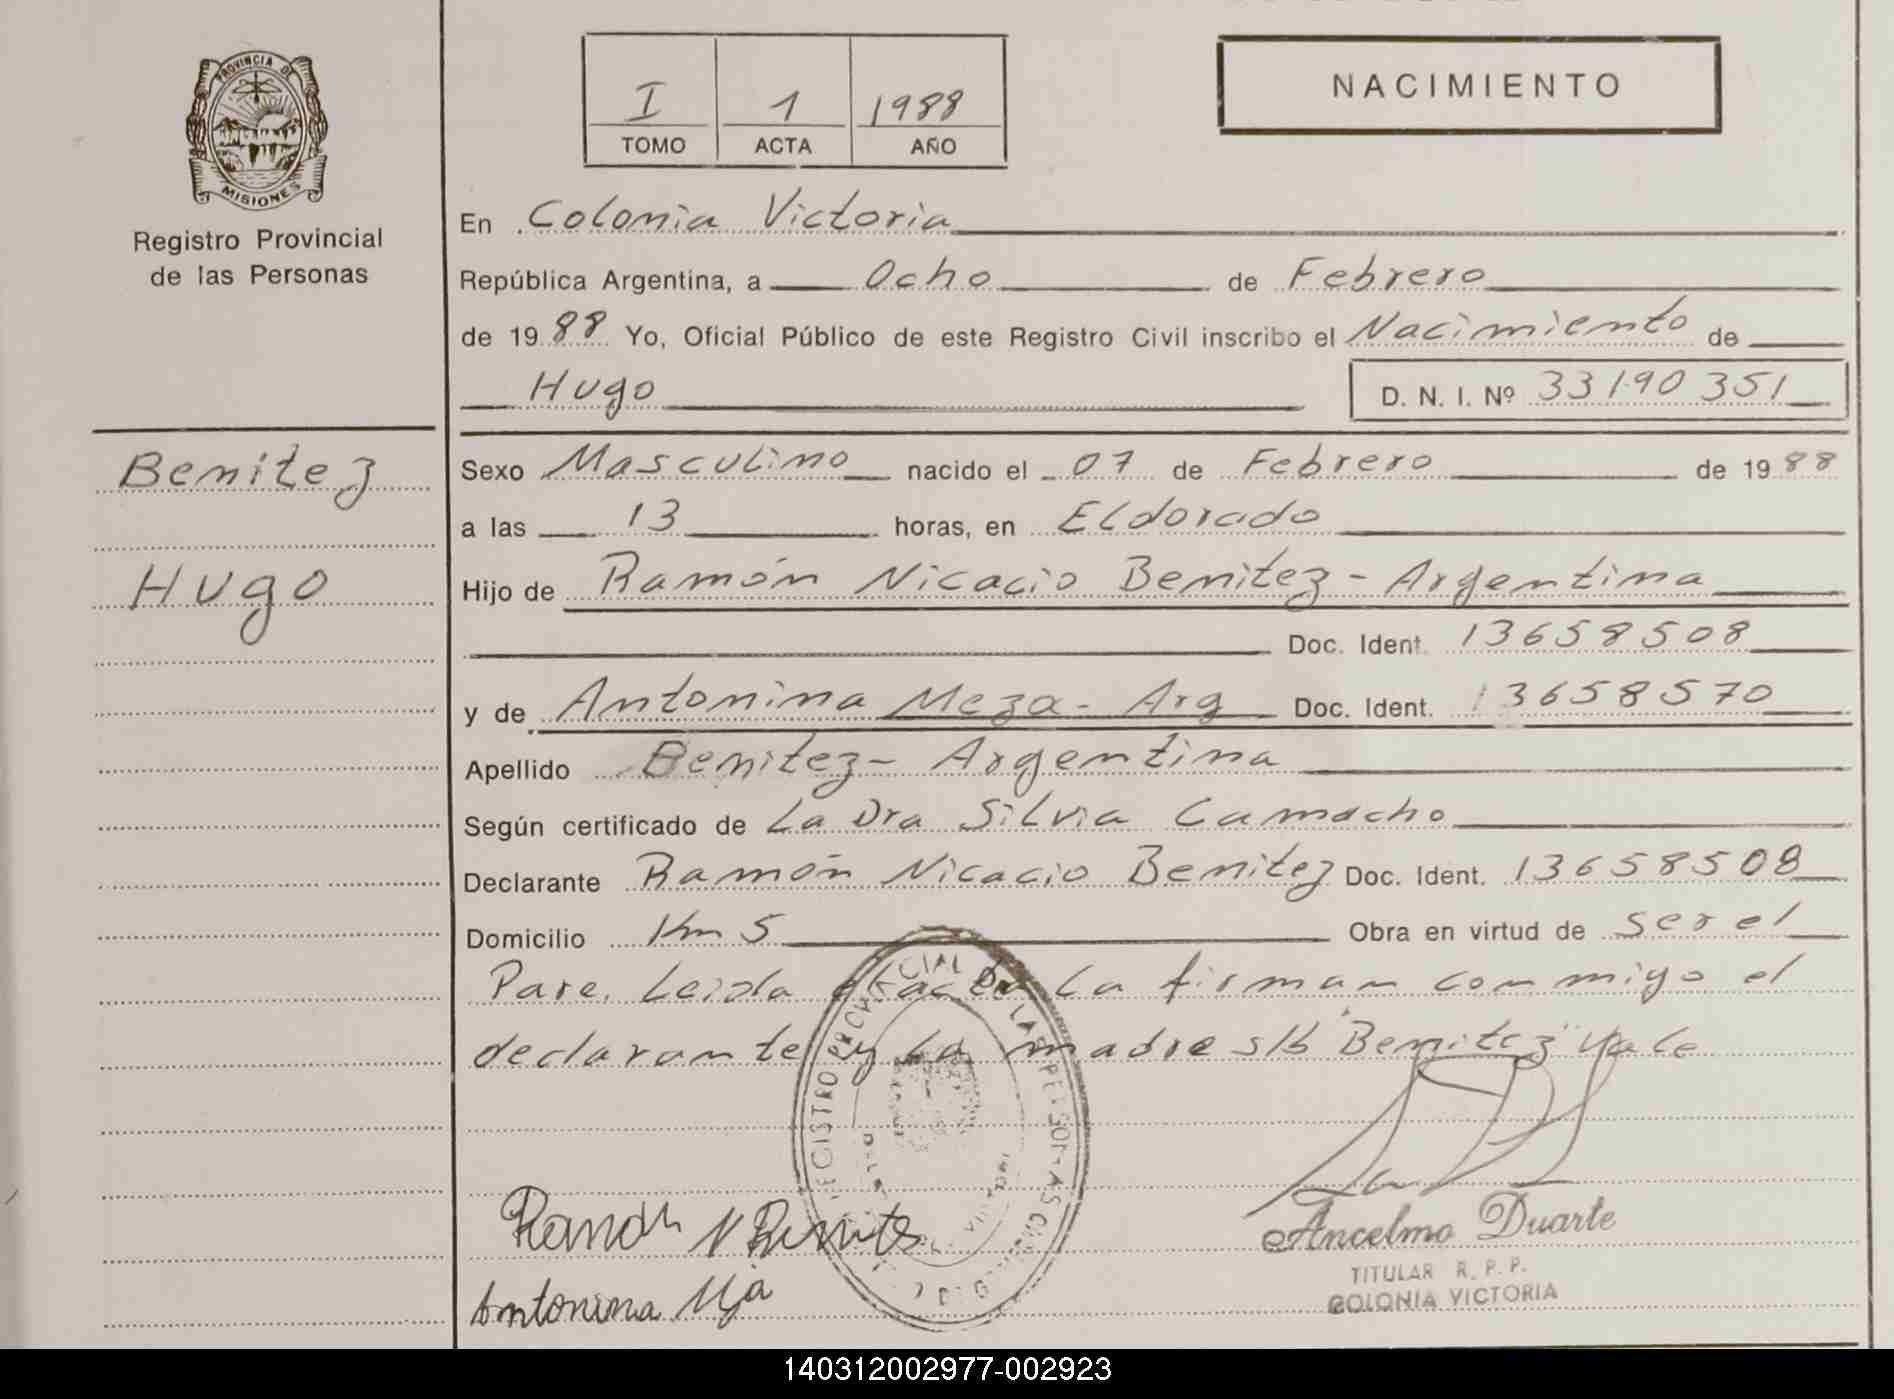 PROVINCIA DE
MISIONES
Registro Provincial
de las Personas
I 1 1988
TOMO ACTA AÑO
NACIMIENTO
En Colonia Victoria
República Argentina, a Ocho de Febrero
de 1988 Yo, Oficial Público de este Registro Civil inscribo el Nacimiento de
Hugo D. N. I. Nº 33190351
Benitez
Hugo
Sexo Masculino nacido el 07 de Febrero de 1988
a las 13 horas, en Eldorado
Hijo de Ramón Nicacio Benitez - Argentina
Doc. Ident. 13658508
y de Antonina Meza - Arg Doc. Ident. 13658570
Apellido Benitez - Argentina
Según certificado de La Dra Silvia Camacho
Declarante Ramón Nicacio Benitez Doc. Ident. 13658508
Domicilio Km 5 Obra en virtud de ser el
Pare. Leida el acta La firman conmigo el
declarante y La madre s/b "Benitez" Vale
Ramón N Benites
Antonina
Ancelmo Duarte
TITULAR R. P. P.
COLONIA VICTORIA
140312002977-002923